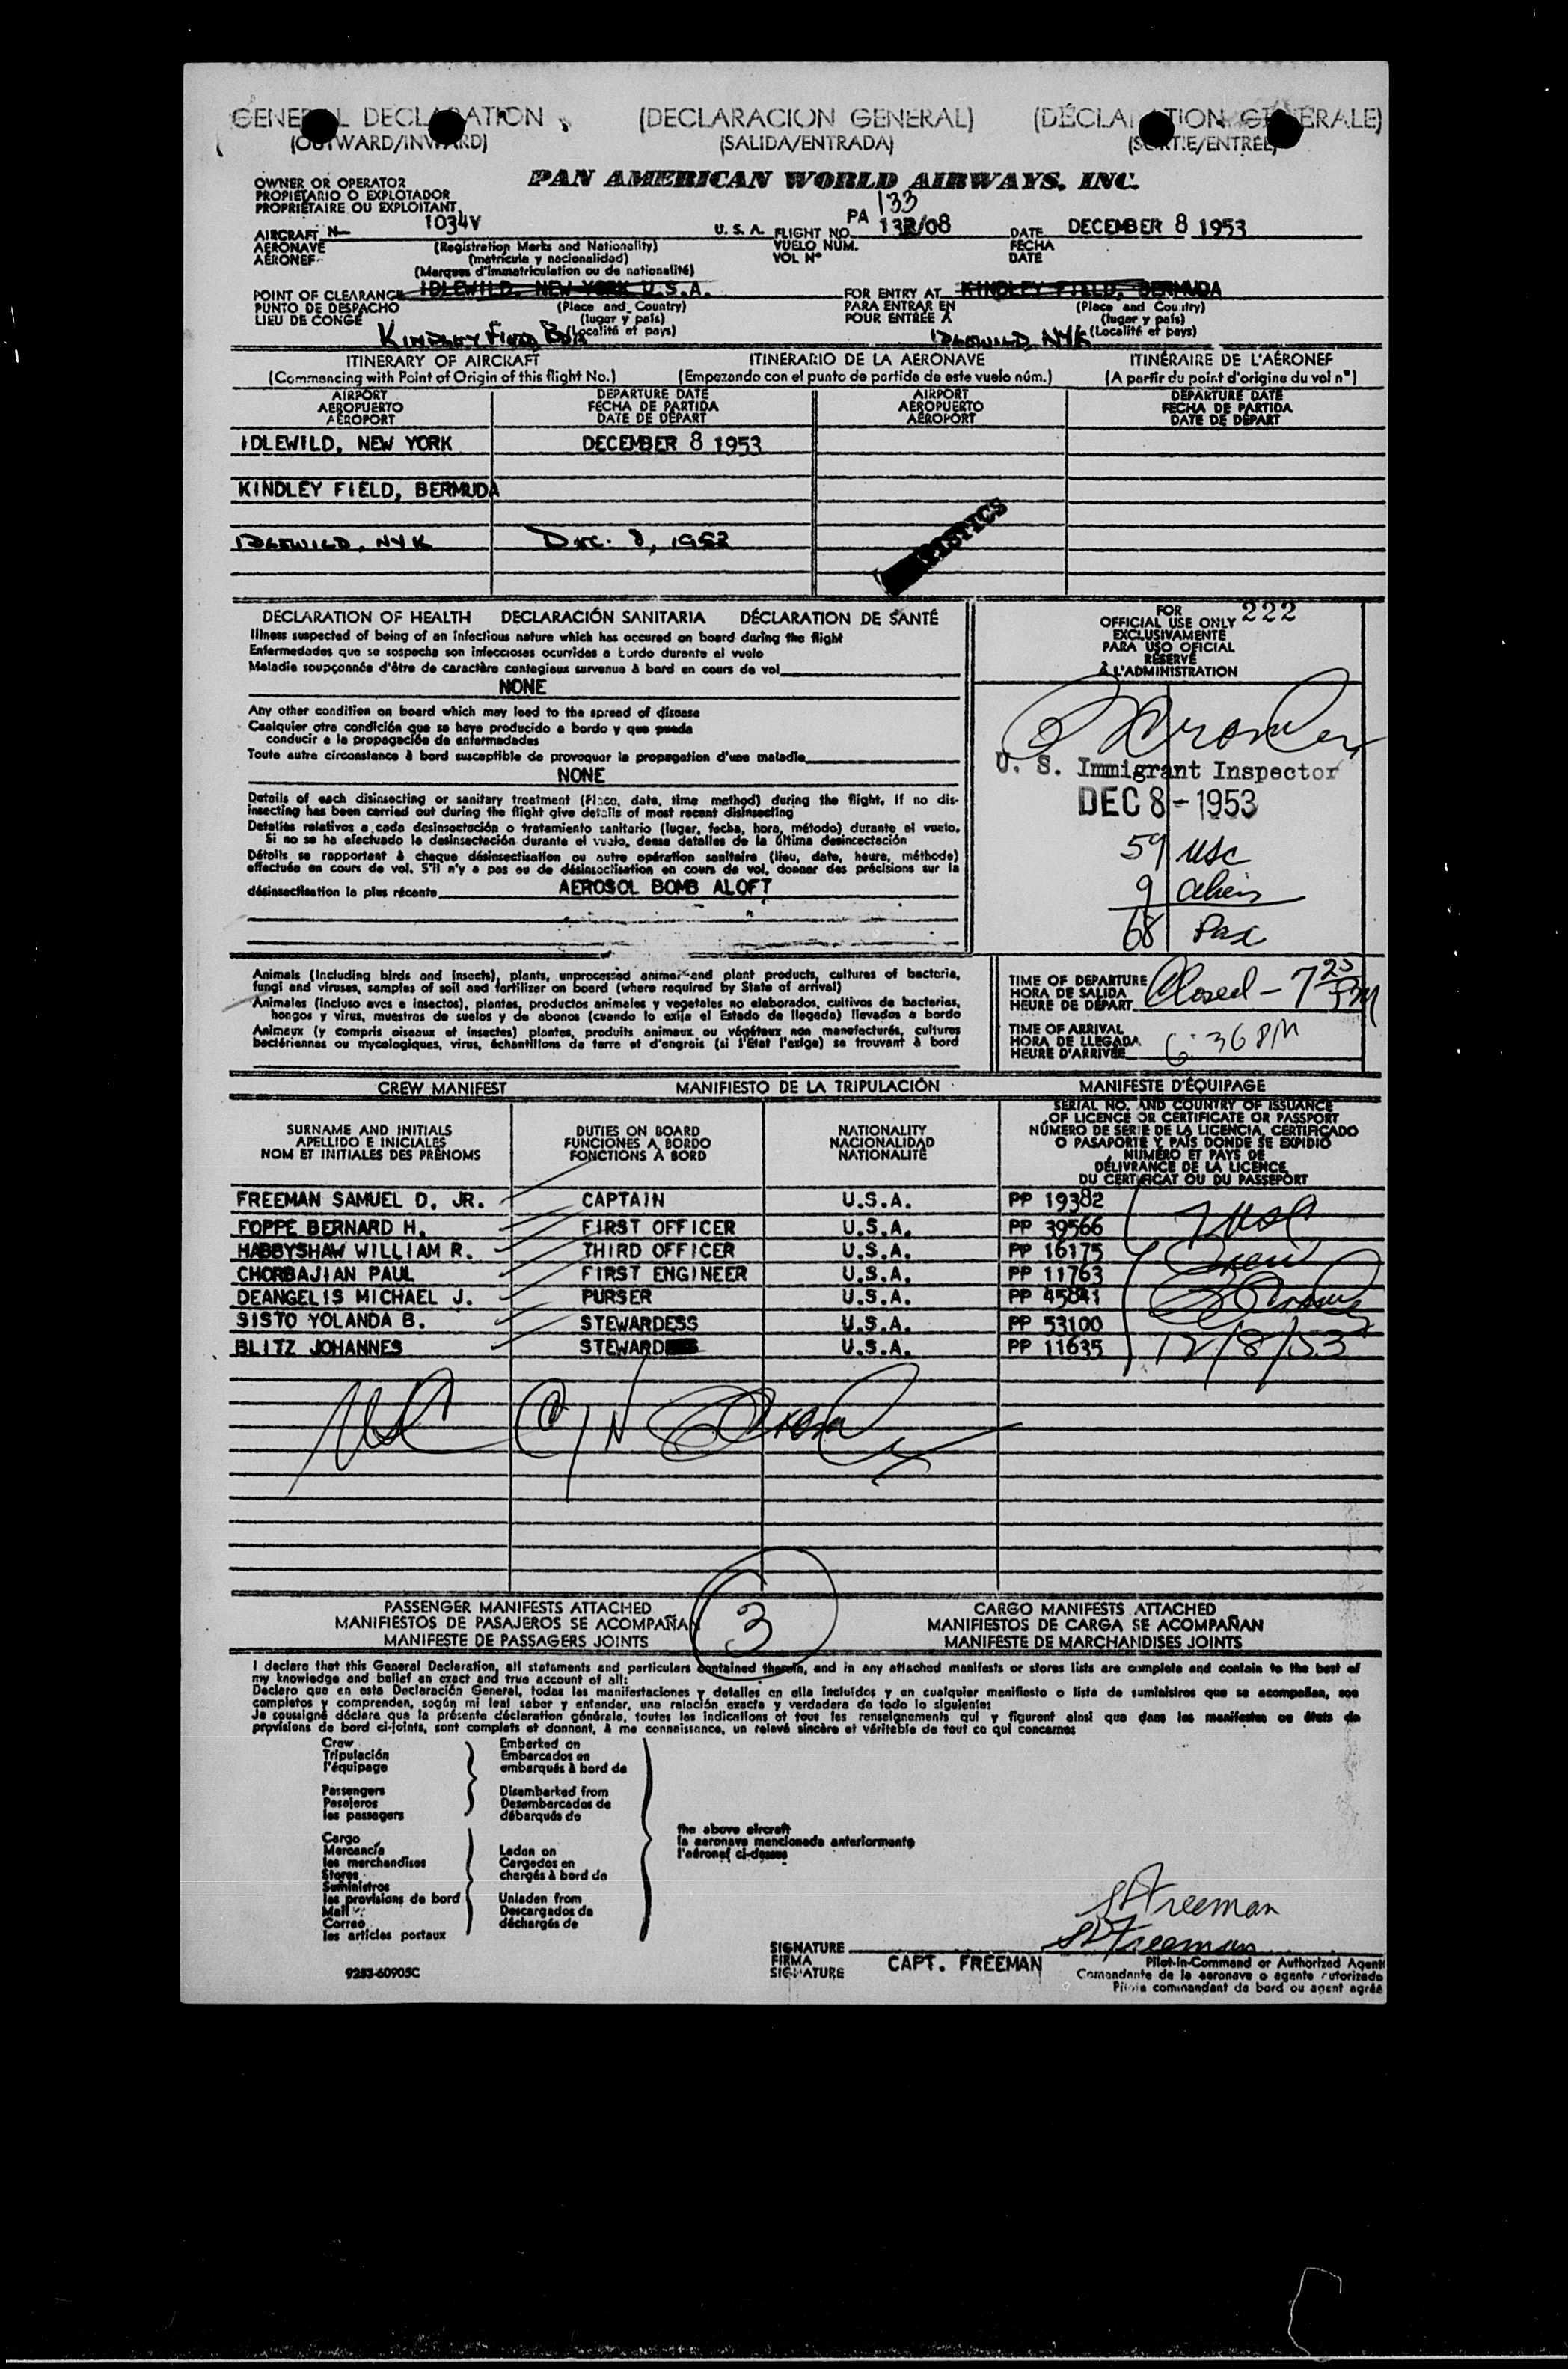 GENERAL DECLARATION (DECLARACION GENERAL) (DÉCLARATION GÉNÉRALE)
(OUTWARD/INWARD) (SALIDA/ENTRADA) (SORTIE/ENTRÉE)
OWNER OR OPERATOR
PROPIETARIO O EXPLOTADOR
PROPRIÉTAIRE OU EXPLOITANT
PAN AMERICAN WORLD AIRWAYS, INC.
133
AIRCRAFT N- 1034V U.S.A. FLIGHT NO. PA 132/08 DATE DECEMBER 8 1953
AERONAVE (Registration Marks and Nationality) VUELO NÚM. FECHA
AÉRONEF (matrícula y nacionalidad) VOL N° DATE
(Marques d'immatriculation ou de nationalité)
POINT OF CLEARANCE IDLEWILD, NEW YORK U.S.A. FOR ENTRY AT KINDLEY FIELD, BERMUDA
PUNTO DE DESPACHO (Place and Country) PARA ENTRAR EN (Place and Country)
LIEU DE CONGÉ (lugar y país) POUR ENTRÉE À (lugar y país)
KINDLEY FIELD, BDA (Localité et pays) IDLEWILD, NYK (Localité et pays)
ITINERARY OF AIRCRAFT ITINERARIO DE LA AERONAVE ITINÉRAIRE DE L'AÉRONEF
(Commencing with Point of Origin of this flight No.) (Empezando con el punto de partida de este vuelo núm.) (A partir du point d'origine du vol n°)
AIRPORT DEPARTURE DATE AIRPORT DEPARTURE DATE
AEROPUERTO FECHA DE PARTIDA AEROPUERTO FECHA DE PARTIDA
AÉROPORT DATE DE DÉPART AÉROPORT DATE DE DÉPART
IDLEWILD, NEW YORK DECEMBER 8 1953
KINDLEY FIELD, BERMUDA
IDLEWILD, NYK DEC. 8, 1953
DECLARATION OF HEALTH DECLARACIÓN SANITARIA DÉCLARATION DE SANTÉ
Illness suspected of being of an infectious nature which has occured on board during the flight
Enfermedades que se sospecha son infecciosas ocurridas a bordo durante el vuelo
Maladie soupçonnée d'être de caractère contagieux survenue à bord en cours de vol
NONE
Any other condition on board which may lead to the spread of disease
Cualquier otra condición que se haya producido a bordo y que pueda
conducir a la propagación de enfermedades
Toute autre circonstance à bord susceptible de provoquer la propagation d'une maladie
NONE
Details of each disinsecting or sanitary treatment (Place, date, time method) during the flight. If no dis-
insecting has been carried out during the flight give details of most recent disinsecting
Detalles relativos a cada desinsectación o tratamiento sanitario (lugar, fecha, hora, método) durante el vuelo.
Si no se ha efectuado la desinsectación durante el vuelo, dense detalles de la última desinsectación
Détails se rapportant à chaque désinsectisation ou autre opération sanitaire (lieu, date, heure, méthode)
effectuée en cours de vol. S'il n'y a pas eu de désinsectisation en cours de vol, donner des précisions sur la
désinsectisation la plus récente AEROSOL BOMB ALOFT
FOR
OFFICIAL USE ONLY 222
EXCLUSIVAMENTE
PARA USO OFICIAL
RÉSERVÉ
À L'ADMINISTRATION
U. S. Immigrant Inspector
DEC 8 - 1953
59 USC
9 aliens
68 Pax
Animals (Including birds and insects), plants, unprocessed animal and plant products, cultures of bacteria,
fungi and viruses, samples of soil and fertilizer on board (where required by State of arrival)
Animales (incluso aves e insectos), plantas, productos animales y vegetales no elaborados, cultivos de bacterias,
hongos y virus, muestras de suelos y de abonos (cuando lo exija el Estado de llegada) llevados a bordo
Animaux (y compris oiseaux et insectes) plantes, produits animaux ou végétaux non manufacturés, cultures
bactériennes ou mycologiques, virus, échantillons de terre et d'engrais (si l'État l'exige) se trouvant à bord
TIME OF DEPARTURE
HORA DE SALIDA
HEURE DE DÉPART Closed - 7 25 PM
TIME OF ARRIVAL
HORA DE LLEGADA
HEURE D'ARRIVÉE 6:36 PM
CREW MANIFEST MANIFIESTO DE LA TRIPULACIÓN MANIFESTE D'ÉQUIPAGE
SURNAME AND INITIALS DUTIES ON BOARD NATIONALITY
APELLIDO E INICIALES FUNCIONES A BORDO NACIONALIDAD
NOM ET INITIALES DES PRÉNOMS FONCTIONS À BORD NATIONALITÉ
SERIAL NO. AND COUNTRY OF ISSUANCE
OF LICENCE OR CERTIFICATE OR PASSPORT
NÚMERO DE SERIE DE LA LICENCIA, CERTIFICADO
O PASAPORTE Y PAÍS DONDE SE EXPIDIÓ
NUMÉRO ET PAYS DE
DÉLIVRANCE DE LA LICENCE,
DU CERTIFICAT OU DU PASSEPORT
FREEMAN SAMUEL D. JR. CAPTAIN U.S.A. PP 19382
FOPPE BERNARD H. FIRST OFFICER U.S.A. PP 39566
HABBYSHAW WILLIAM R. THIRD OFFICER U.S.A. PP 16175
CHORBAJIAN PAUL FIRST ENGINEER U.S.A. PP 11763
DEANGELIS MICHAEL J. PURSER U.S.A. PP 45841
SISTO YOLANDA B. STEWARDESS U.S.A. PP 53100
BLITZ JOHANNES STEWARD U.S.A. PP 11635
7 USC
Crew
12/8/53
3
PASSENGER MANIFESTS ATTACHED CARGO MANIFESTS ATTACHED
MANIFIESTOS DE PASAJEROS SE ACOMPAÑAN MANIFIESTOS DE CARGA SE ACOMPAÑAN
MANIFESTE DE PASSAGERS JOINTS MANIFESTE DE MARCHANDISES JOINTS
I declare that this General Declaration, all statements and particulars contained therein, and in any attached manifests or stores lists are complete and contain to the best of
my knowledge and belief an exact and true account of all:
Declaro que en esta Declaración General, todas las manifestaciones y detalles en ella incluídos y en cualquier manifiesto o lista de suministros que se acompañan, son
completos y comprenden, según mi leal saber y entender, una relación exacta y verdadera de todo lo siguiente:
Je soussigné déclare que la présente déclaration générale, toutes les indications et tous les renseignements qui y figurent ainsi que dans les manifestes ou états de
provisions de bord ci-joints, sont complets et donnent, à me connaissance, un relevé sincère et véritable de tout ce qui concerne:
Crew Embarked on
Tripulación Embarcados en
l'équipage embarqués à bord de
Passengers Disembarked from
Pasajeros Desembarcados de
les passagers débarqués de
the above aircraft
la aeronave mencionada anteriormente
l'aéronef ci-dessus
Cargo
Mercancía Laden on
les merchandises Cargados en
Stores chargés à bord de
Suministros
les provisions de bord Unladen from
Mail Descargados de
Correo déchargés de
les articles postaux
SD Freeman
SD Freeman
SIGNATURE
FIRMA CAPT. FREEMAN Pilot-in-Command or Authorized Agent
SIGNATURE Comandante de la aeronave o agente autorizado
9253-60905C Pilote commandant de bord ou agent agréé